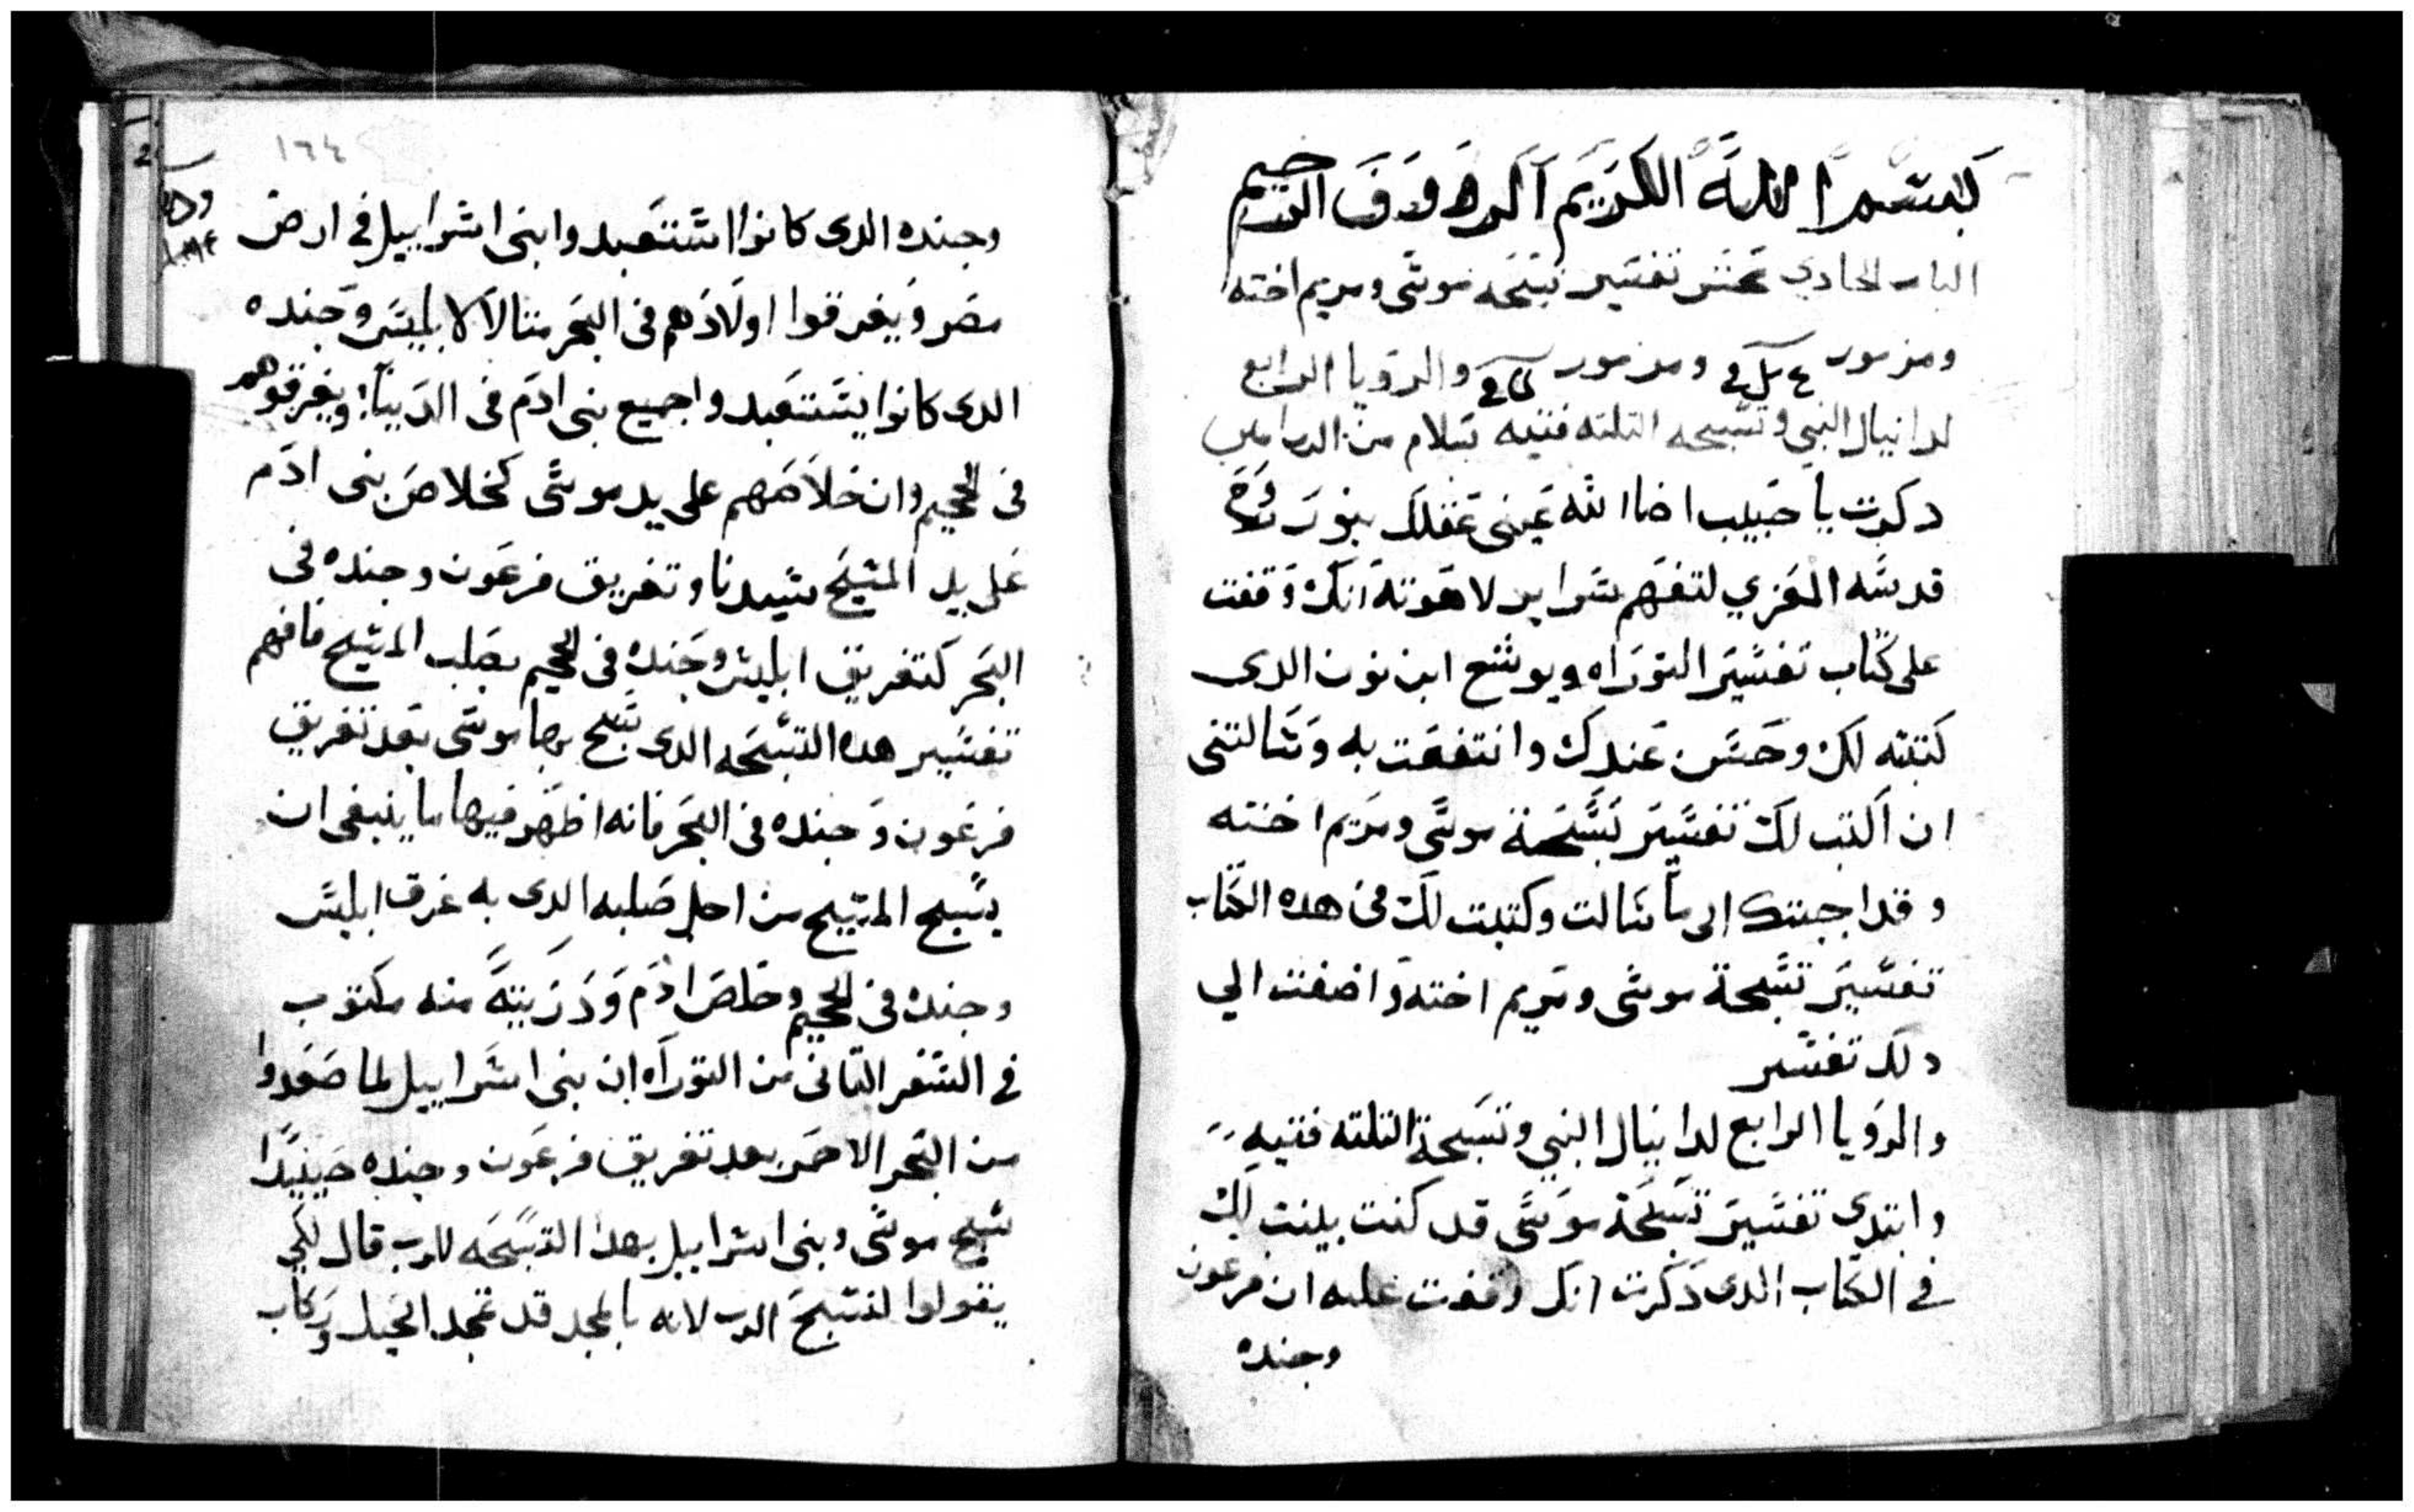 بسم الله الكريم الروف الرحيم
الباب الحادي عشر تفسير تسبحه موسى ومريم اخته
ومزمور ومزمور والرويا الرابع
لدانيال النبي وتسبحه التلته فتيه بسلام من الرب امين
دكرت يا حبيب اضا الله عيني عقلك بنور روح
قدسه المعزي لتفهم سراير لاهوته انك وقفت
على كتاب تفسير التوراه ويوشع ابن نون الدى
كتبته لك وحسن عندك وانتفعت به وسالتنى
ان اكتب لك تفسير تسبحة موسى ومريم اخته
وقد اجبتك الى ما سالت وكتبت لك فى هده الكتاب
تفسير تسبحة موسى ومريم اخته واضفت الي
دلك تفسير
والرويا الرابع لدانيال النبي وتسبحة التلته فتيه
وابتدي تفسير تسبحة موسى قد كنت بينت لك
في الكتاب الدى دكرت انك وقفت عليه ان فرعون
وجنده
١٦٤
وجنده الدى كانوا استتعبدوا بنى اسراييل في ارض
مصر ويغرقوا اولادهم فى البحر متالا لابليس وجنده
الدى كانوا يستتعبدوا جميع بنى ادم فى الدنيا ويغرقوهم
فى الجحيم وان خلاصهم على يد موسى كخلاص بنى ادم
على يد المسيح سيدنا وتغريق فرعون وجنده فى
البحر كتغريق ابليس وجنده فى الجحيم بصلب المسيح فافهم
تفسير هده التسبحه الدى سبح بها موسى بعد تغريق
فرعون وجنده فى البحر فانه اظهر فيها ما ينبغى ان
يسبح المسيح من اجل صلبه الدى به غرق ابليس
وجنده فى الجحيم وخلص ادم ودريته منه مكتوب
في السفر التانى من التوراه ان بنى اسراييل لما صعدوا
من البحر الاحمر بعد تغريق فرعون وجنده حينيدا
سبح موسى وبنى اسراييل بهدا التسبحه للرب قال لكي
يقولوا لنسبح الرب لانه بالمجد قد تمجد الخيل وركاب